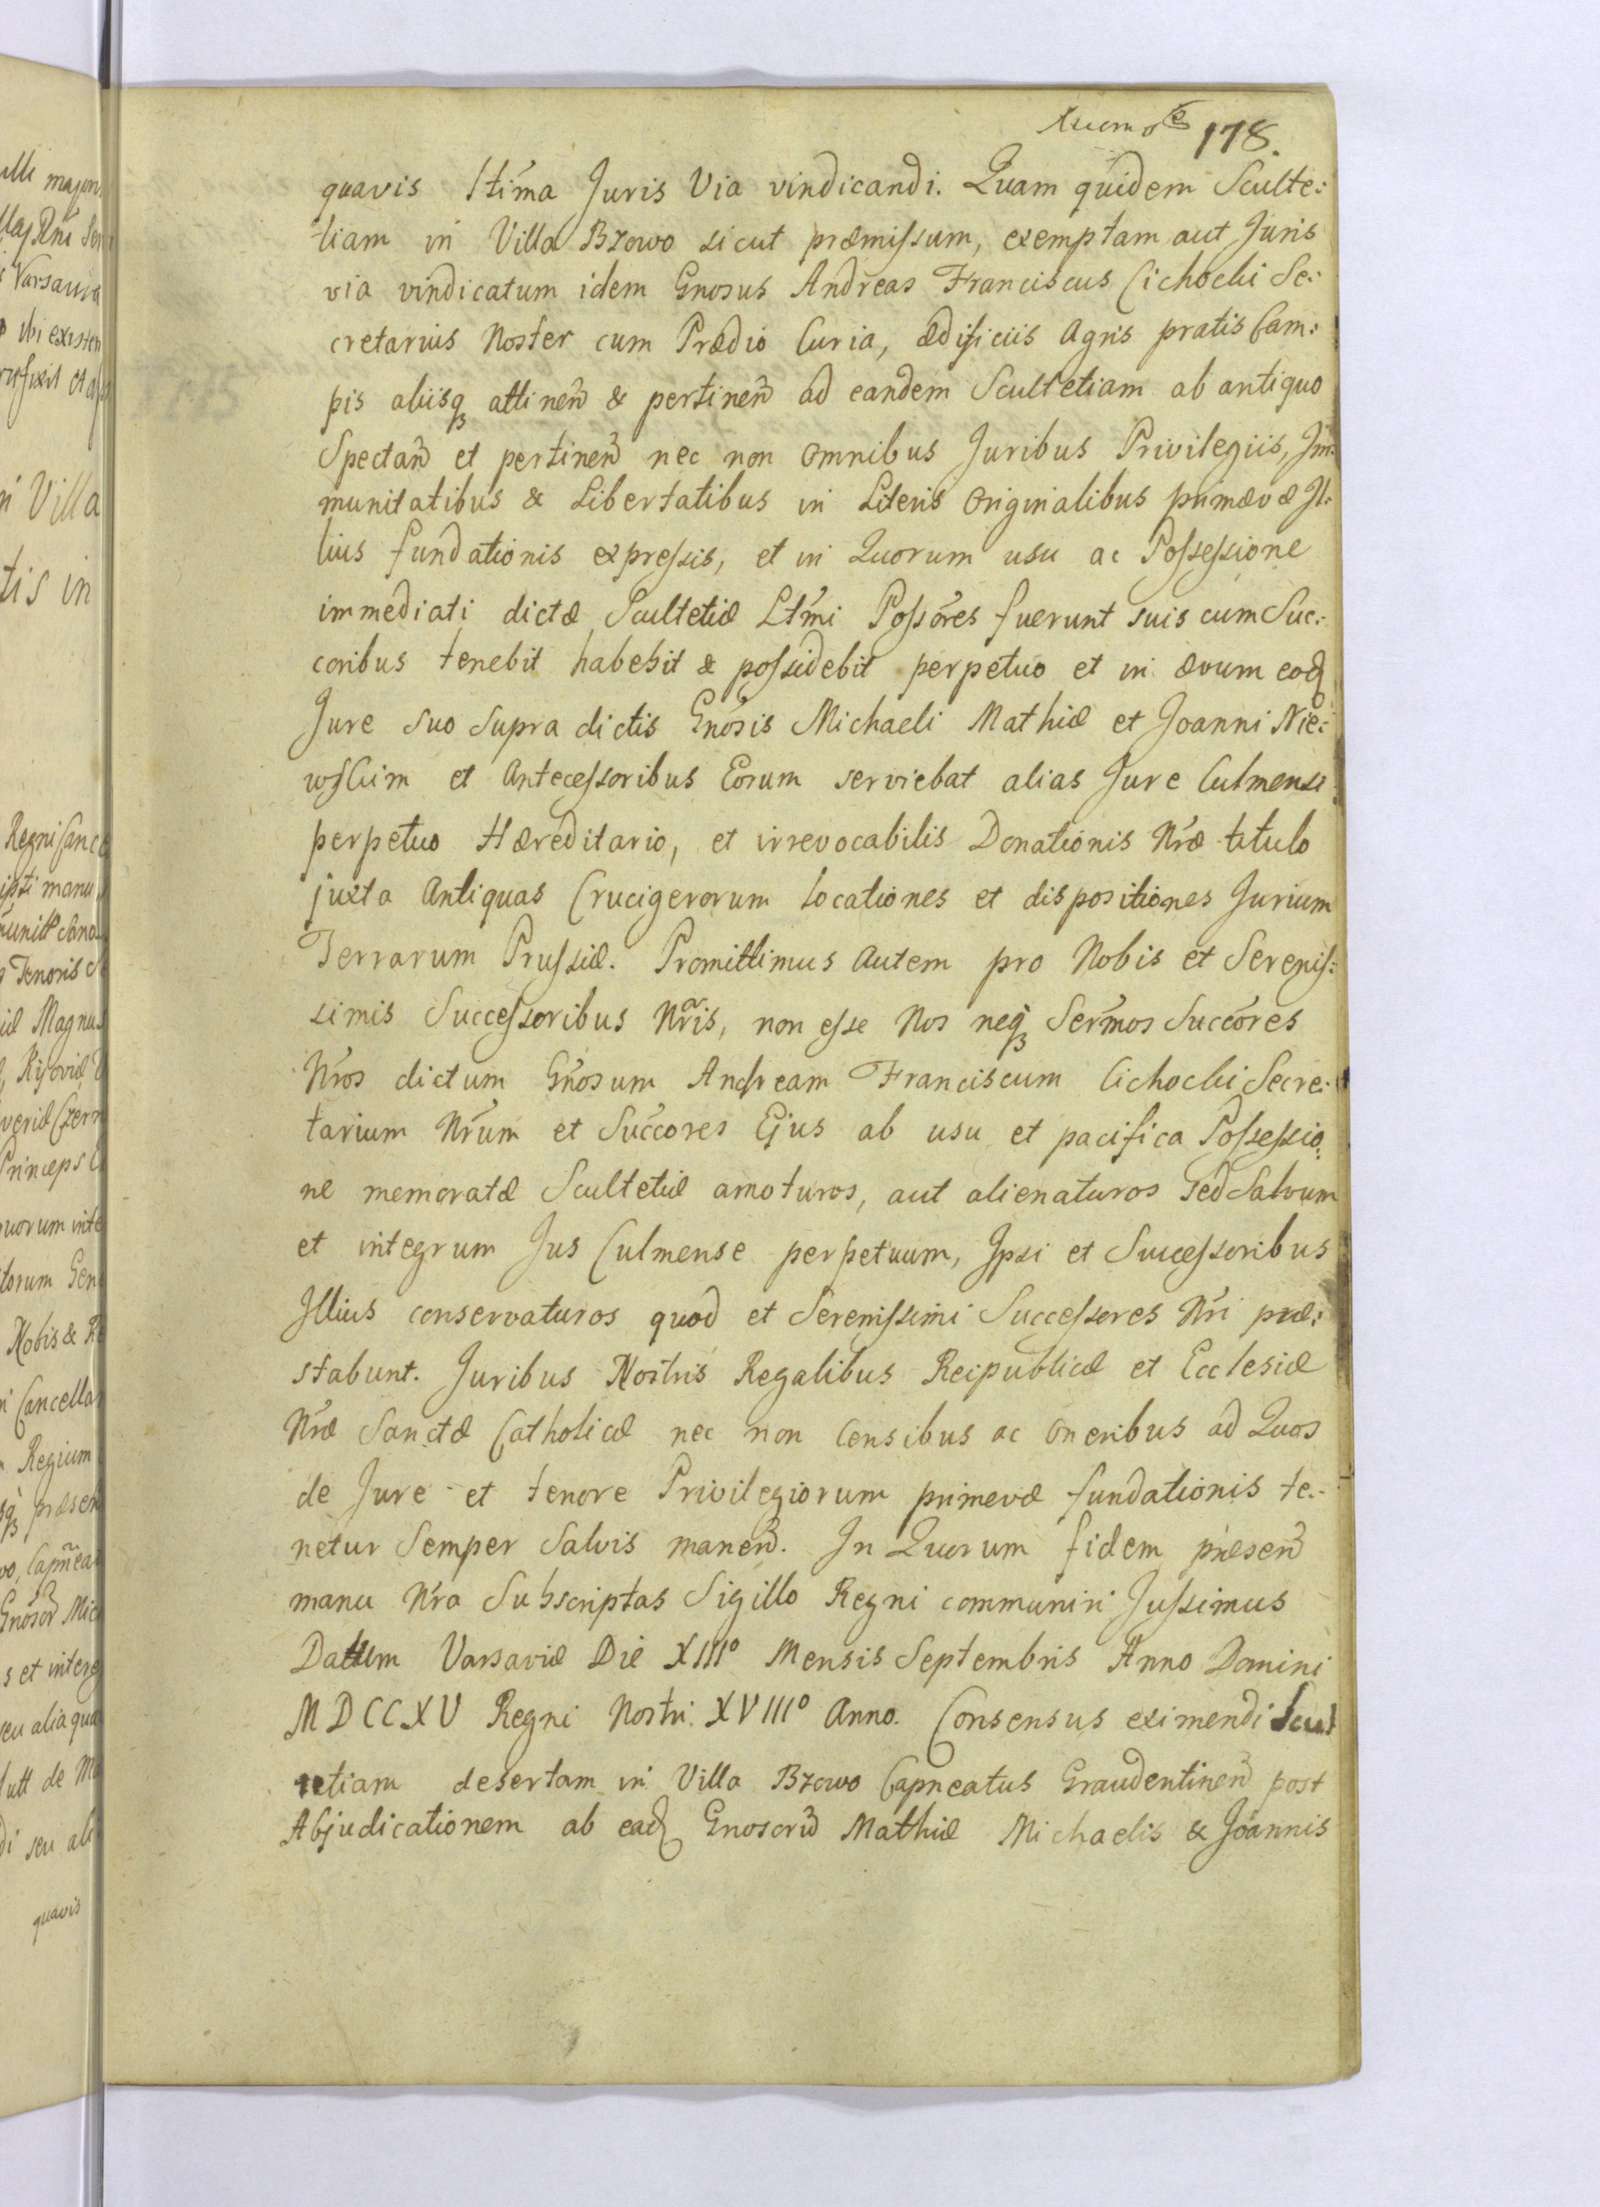 178.
quavis ltima Juris Via vindicandi. Quam quidem Sculte:
tiam in Villa Brzowo sicut præmissum, exemptam aut Juris
via vindicatum idem Gnosus Andreas Franciscus Cichocki Se:
cretarius Noster cum Prædio Curia, ædificiis Agris pratis Cam:
pis aliisq attinen & pertinen ad eandem Scultetiam ab antiquo
Spectan et pertinen nec non omnibus Juribus Privilegiis, Im:
munitatibus & Libertatibus in Literis Originalibus primævæ Il:
lius fundationis expressis, et in Quorum usu ac Possessione
immediati dictæ Scultetiæ Ltmi Possores fuerunt suis cum Suc:
coribus tenebit habebit & possidebit perpetuo et in ævum eoq
Jure suo supra dictis Gnosis Michaeli Mathiæ et Joanni Nie:
wscim et Antecessoribus Eorum serviebat alias Jure Culmensi
perpetuo Hæreditario, et irrevocabilis Donationis Nræ titulo
juxta Antiquas Crucigerorum locationes et dispositiones Jurium
Terrarum Prussiæ. Promittimus autem pro Nobis et Serenis:
simis Successoribus Nris, non esse Nos neq Sermos Succores
Nros dictum Gnosum Andream Franciscum Cichocki Secre:
tarium Nrum et Succores Ejus ab usu et pacifica Possessio
ne memoratæ Scultetiæ amoturos, aut alienaturos Sed Salvum
et integrum Jus Culmense perpetuum, Ipsi et Successoribus
Illius conservaturos quod et Serenissimi Successores Nri præ:
stabunt. Juribus Nostris Regalibus Reipublicæ et Ecclesiæ
Nræ Sanctæ Catholicæ nec non Censibus ac Oneribus ad Quos
de Jure et tenore Privilegiorum primevæ fundationis te:
netur Semper Salvis manen. In Quorum fidem præsen
manu Nra Subscriptas Sigillo Regni communiri Jussimus
Datum Varsaviæ Die XIIIº Mensis Septembris Anno Domini
MDCCXV Regni Nostri XVIIIº Anno. Consensus eximendi Scul
tetiam desertam in Villa Brzowo Capneatus Graudentinen post
Abjudicationem ab eaq Gnosorum Mathiæ Michaelis & Joannis